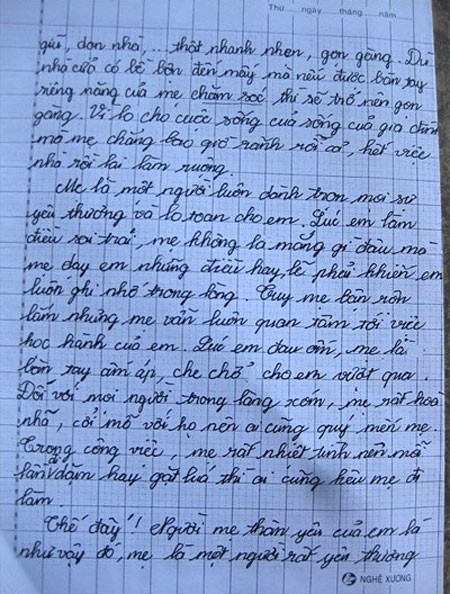 Thứ ..... ngày ..... tháng ..... năm .....
giũ, dọn nhà, ... thật nhanh nhẹn, gọn gàng. Dù
nhà cửa có bề bộn đến mấy mà nếu được bàn tay
siêng năng của mẹ chăm sóc thì sẽ trở nên gọn
gàng. Vì lo cho cuộc sống của sống của gia đình
mà mẹ chẳng bao giờ rảnh rỗi cả, hết việc
nhà rồi lại làm ruộng.
Mẹ là một người luôn dành trọn mọi sự
yêu thương và lo toan cho em. Lúc em làm
điều sai trái, mẹ không la mắng gì đâu mà
mẹ dạy em những điều hay lẽ phải khiến em
luôn ghi nhớ trong lòng. Tuy mẹ bận rộn
lắm nhưng mẹ vẫn luôn quan tâm tới việc
học hành của em. Lúc em đau ốm, mẹ là
bàn tay ấm áp, che chở cho em vượt qua.
Đối với mọi người trong làng xóm, mẹ rất hoà
nhã, cởi mở với họ nên ai cũng quý mến mẹ.
Trong công việc, mẹ rất nhiệt tình nên mỗi
lần đi dặm hay gặt luá thì ai cũng kêu mẹ đi
làm.
Thế đấy! Người mẹ thân yêu của em là
như vậy đó, mẹ là một người rất yêu thương
NGHỆ XƯƠNG